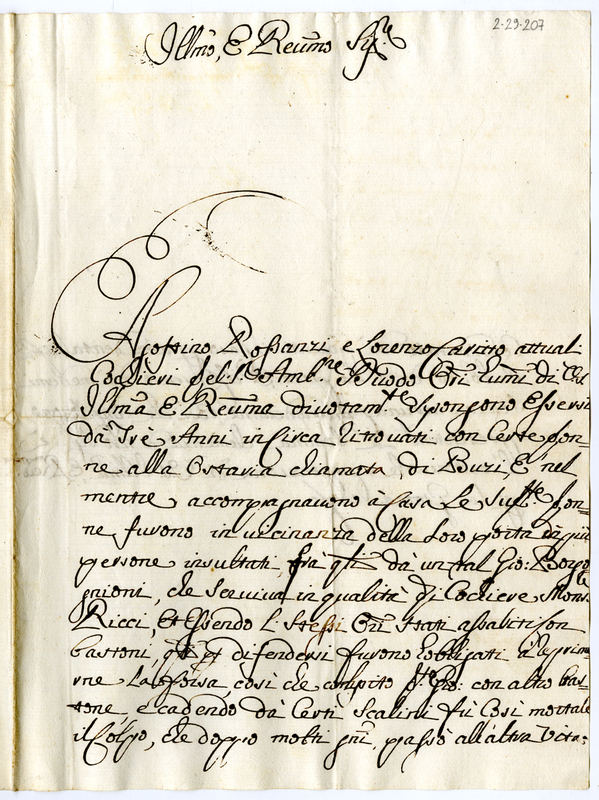 2-29-207
Illmo, E Reumo Sig.re
Agostino Rossanzi e Lorenzo Caritto attuali
Cochieri del S. Amb.re Duodo Ori humi di
Illma E Reuma diuotam.te Spongono Essersi
da Trè Anni in Circa ritrouati con Certe Don=
ne alla Ostaria chiamata di Buzi, E nel
mentre accompagnauono à Casa Le Sud.tte Don=
ne furono in uicinanza della Loro porta di più
persone insultati, frà qli dà un tal Gio:
gnioni, che Seruiua in qualità di Cochiere Mons.
Ricci, Et Essendo L Stessi Ori Stati assaliti Con
bastoni, p difendersi furono obbligati à reprim
rne La forza, così che colpito Gio: con altro bas=
tone, e cadendo dà Certi Scalini fù Così mortale
il Colpo, che doppo molti gni, passò all'altra Vita;